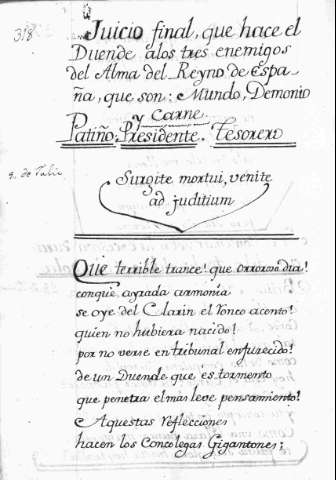 318
Juicio final, que hace el
Duende alos tres enemigos
del Alma del Reyno de Espa-
ña, que son: Mundo, Demonio
y Carne.
Patiño: Presidente. Tesorero
Surgite mortui, venite
ad juditium
Que terrible trance! que orroroso dia!
conque ayrada armonía
se oye del Clarin el ronco acento!
quien no hubiera nacido!
por no verse en tribunal enfurecido!
de un Duende que es tormento
que penetra el más leve pensamiento!
Aquestas reflecciones
hacen los Concolegas Gigantones;